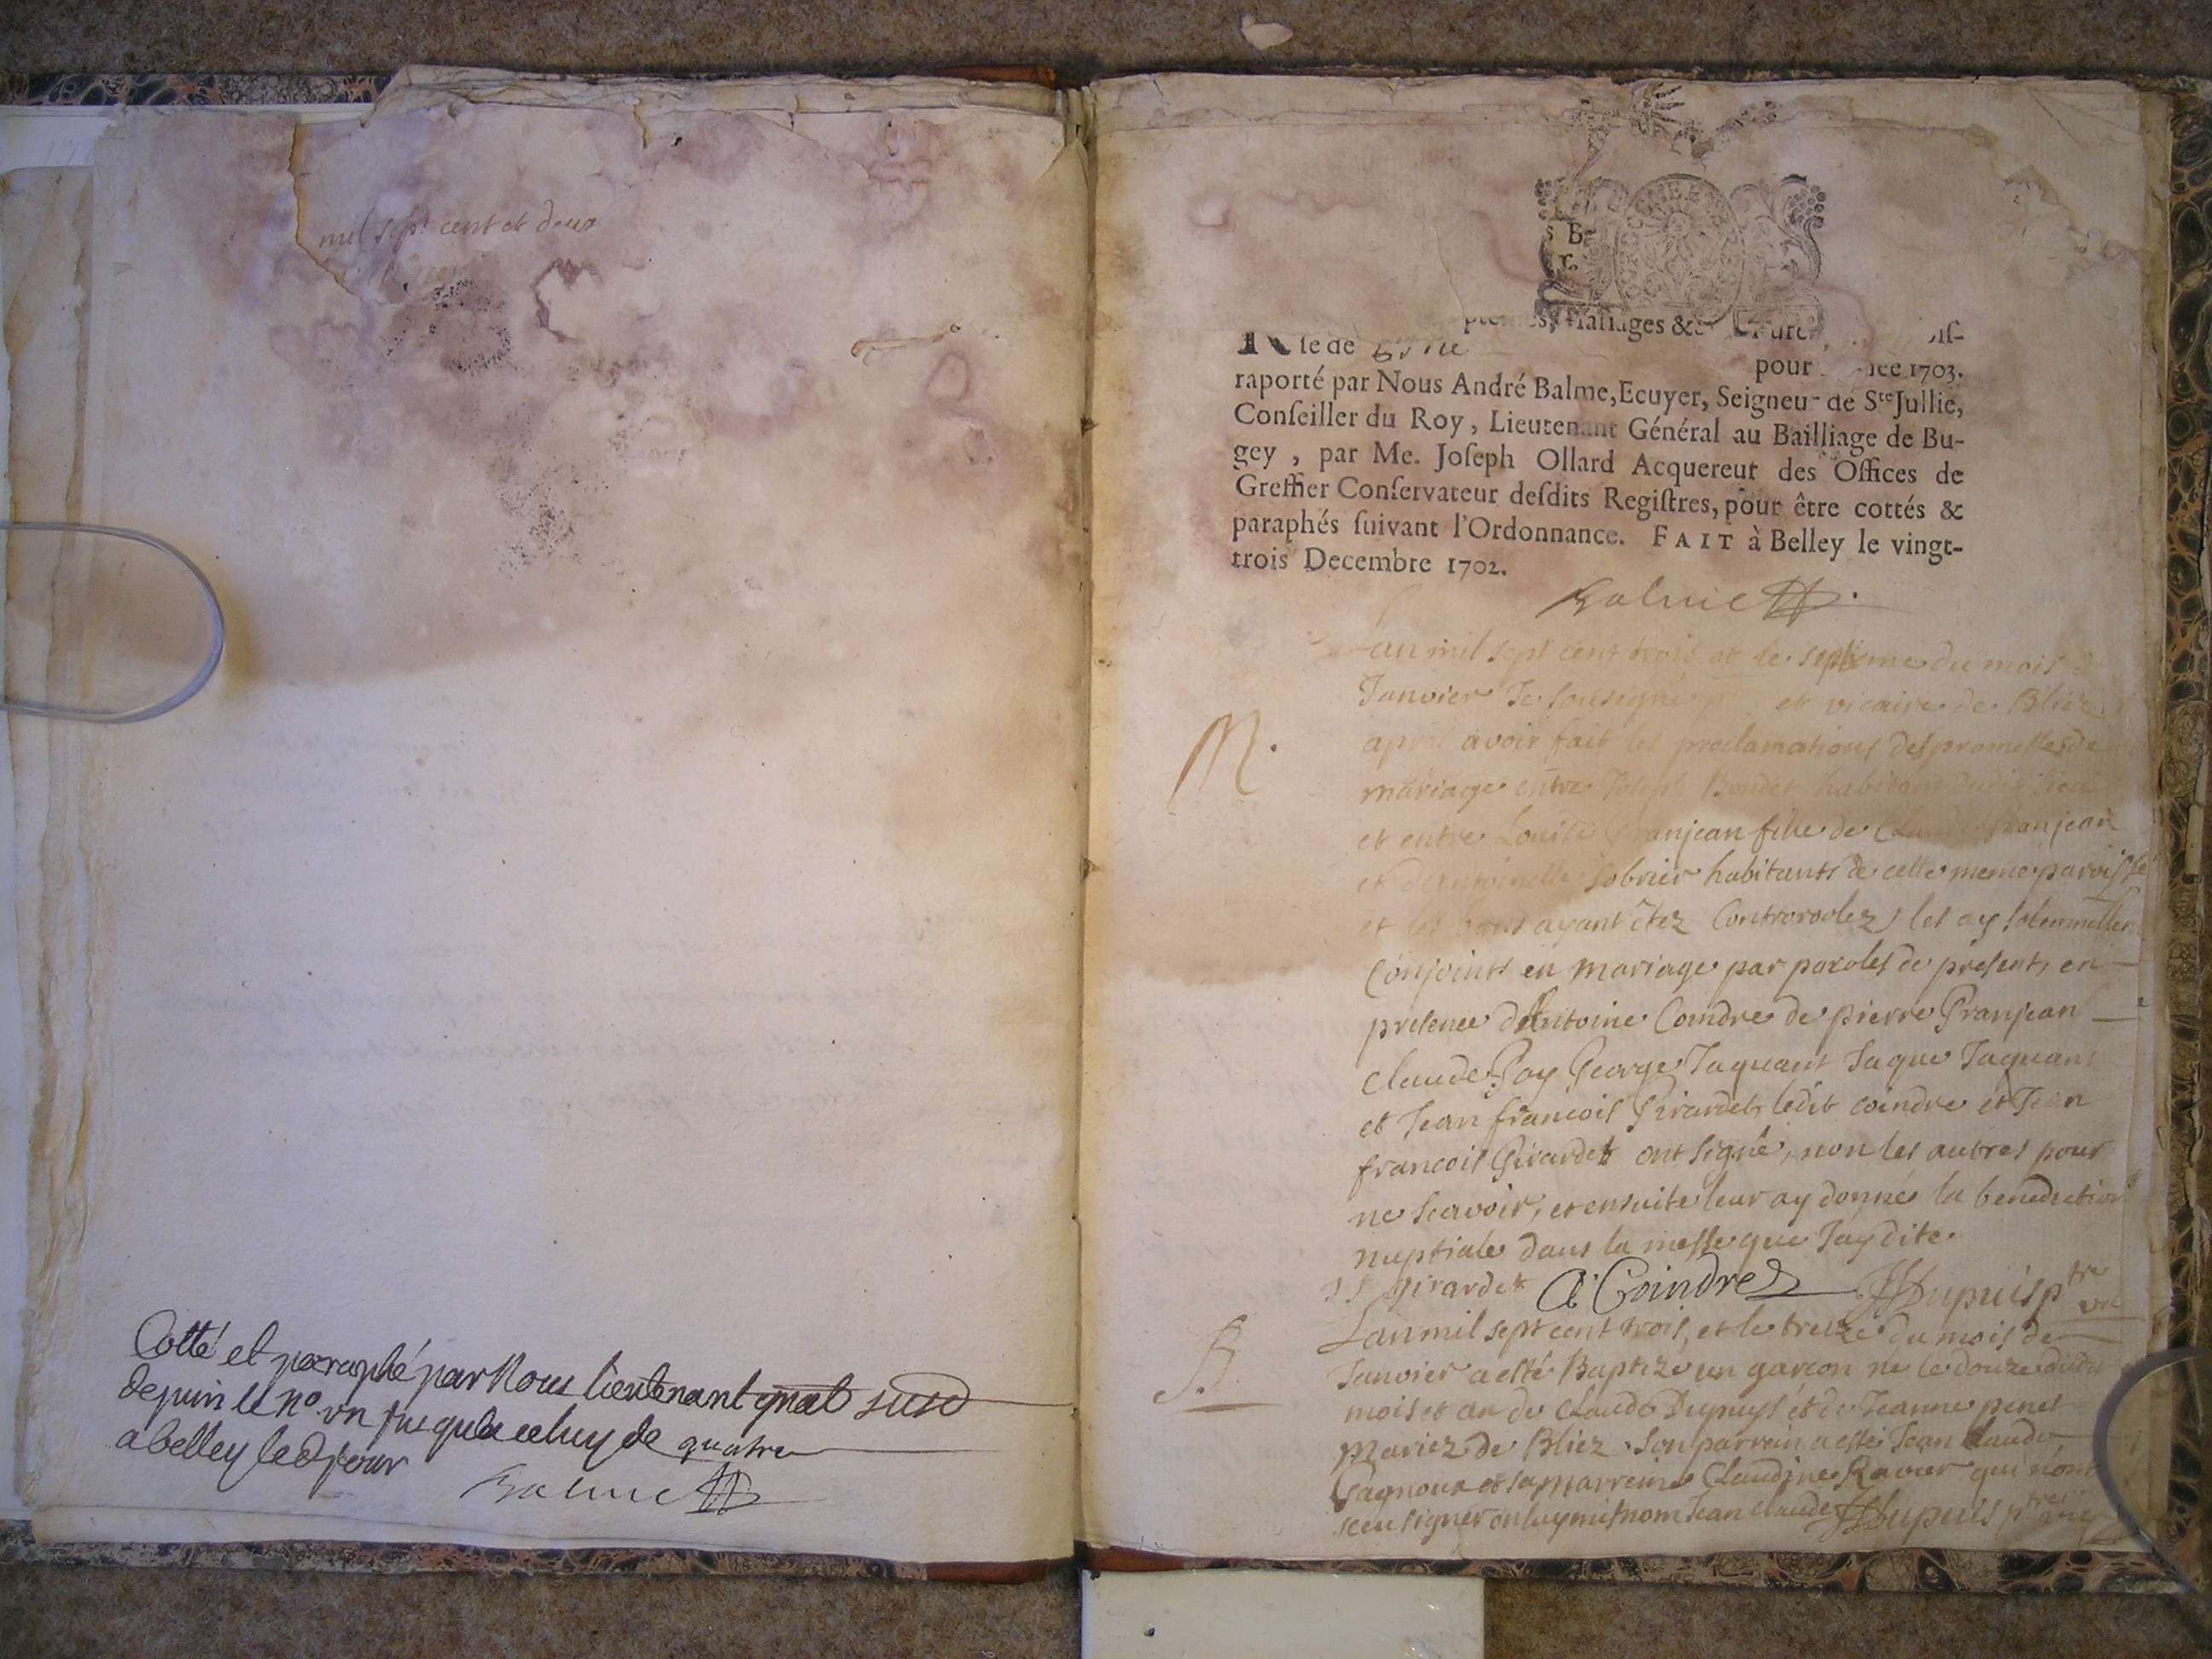 mil sept cent et deux
Cotté et paraphé par Nous lieutenant gnal susd
depuis le no. un jusqu'a celuy de quatre
a belley led jour
Balme
s B
r.
ptemes, Mariages &
pour née 1703.
raporté par Nous André Balme, Ecuyer, Seigneur de Ste Jullie,
Conſeiller du Roy, Lieutenant Général au Bailliage de Bu-
gey, par Me. Joſeph Ollard Acquereur des Offices de
Greffier Conſervateur deſdits Regiſtres, pour être cottés &
paraphés ſuivant l'Ordonnance. FAIT à Belley le vingt-
trois Decembre 1702.
Balme
Lan mil sept cent trois et le septieme du mois
Janvier Je sousigné et vicaire de Bliez
M.
apres avoir fait les proclamations des promesses de
mariage entre Joseph Bondet habitant dudit lieu
et entre Louise Granjean fille de Claude Granjean
et Dantoinette Sobrier habitants de cette meme paroisse
et les bans ayant étez Controrolez, les ay solemnellem
Conjoints en mariage par paroles de present, en
presence d'Antoine Coindre de pierre Granjean
Claude Goy George Jaquant Jaque Jaquant
et Jean francois Girardet, ledit coindre et Jean
francois Girardet ont signé, non les autres pour
ne scavoir, et ensuite leur ay donné la benediction
nuptiale dans la messe que Jay dite.
Girardet A Coindre Dupuis ptre vic
B.
Lan mil sept cent trois, et le treize du mois de
Janvier a esté Baptize un garcon né le douze dudit
mois et an de Claude Dupuys et de Jeanne penet
Mariez de Bliez. Son parrain a esté Jean Claude
Gagnoux et sa marreine Claudine Ravier qui n'ont
sceu signer on luy mis nom Jean Claude Dupuis ptre